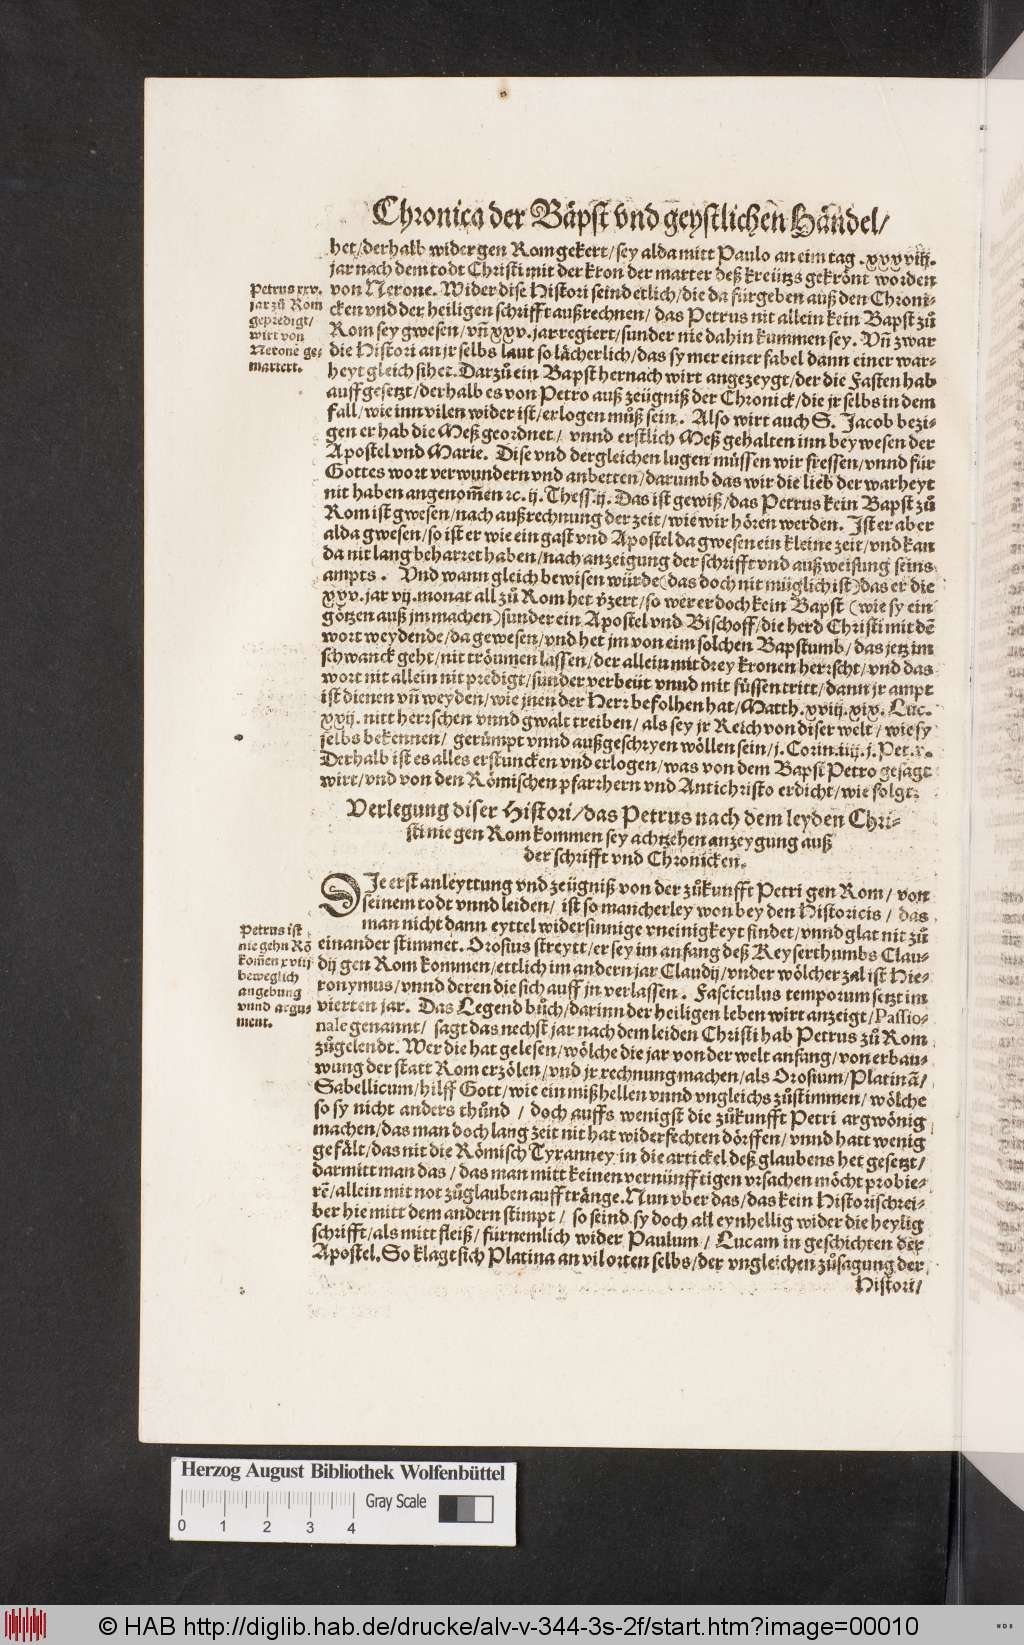 Chronica der Bäpst vnd geystlichen Händel/
het/derhalb wider gen Rom gekert/sey alda mitt Paulo an eim tag .xxxviij.
jar nach dem todt Christi mit der kron der marter deß kreützs gekrönt worden
von Nerone. Wider dise Histori seind etlich/die da fürgeben auß den Chroni-
cken vnd der heiligen schrifft außrechnen/ das Petrus nit allein kein Bapst zů
Rom sey gwesen/vn̄ xxv.jar regiert/sunder nie dahin kummen sey. Vn̄ zwar
die Histori an jr selbs laut so lächerlich/das sy mer einer fabel dann einer war-
heyt gleich sihet. Darzů ein Bapst hernach wirt angezeygt/der die Fasten hab
auffgesetzt/derhalb es von Petro auß zeügniß der Chronick/die jr selbs in dem
fall/wie inn vilen wider ist/erlogen můß sein. Also wirt auch S. Jacob bezi-
gen er hab die Meß geordnet/ vnnd erstlich Meß gehalten inn beywesen der
Apostel vnd Marie. Dise vnd dergleichen lugen müssen wir fressen/vnnd für
Gottes wort verwundern vnd anbetten/darumb das wir die lieb der warheyt
nit haben angenom̄en ꝛc. ij. Thess. ij. Das ist gewiß/das Petrus kein Bapst zů
Rom ist gwesen/nach außrechnung der zeit/wie wir hören werden. Ist er aber
alda gwesen/so ist er wie ein gast vnd Apostel da gwesen ein kleine zeit/vnd kan
da nit lang beharret haben/nach anzeigung der schrifft vnd außweisung seins
ampts. Vnd wann gleich bewisen würde (das doch nit müglich ist) das er die
xxv.jar vij.monat all zů Rom het v̈zert/so wer er doch kein Bapst (wie sy ein
götzen auß jm machen) sunder ein Apostel vnd Bischoff/die herd Christi mit dē
wort weydende/da gewesen/vnd het jm von eim solchen Bapstumb/das jetz im
schwanck geht/nit tröumen lassen/der allein mit drey kronen herrscht/vnd das
wort nit allein nit predigt/sunder verbeüt vnnd mit füssen tritt/dann jr ampt
ist dienen vn̄ weyden/wie jnen der Herr befolhen hat/Matth.xviij.xix. Luc.
xxij. nitt herrschen vnnd gwalt treiben/ als sey jr Reich von diser welt/ wie sy
selbs bekennen/ gerümpt vnnd außgeschryen wöllen sein/j. Corin.iiij.j.Pet.v.
Derhalb ist es alles erstuncken vnd erlogen/was von dem Bapst Petro gesagt
wirt/vnd von den Römischen pfarrhern vnd Antichristo erdicht/wie folgt.
Petrus xxv.
jar zů Rom
gepredigt/
wirt von
Nerone ge-
martert.
Verlegung diser Histori/das Petrus nach dem leyden Chri-
sti nie gen Rom kommen sey achtzehen anzeygung auß
der schrifft vnd Chronicken.
DIe erst anleyttung vnd zeügniß von der zůkunfft Petri gen Rom/ von
seinem todt vnnd leiden/ ist so mancherley won bey den Historicis/ das
man nicht dann eyttel widersinnige vneinigkeyt findet/vnnd glat nit zů
einander stimmet. Orosius streytt/er sey im anfang deß Keyserthumbs Clau-
dij gen Rom kommen/ettlich im andern jar Claudij/vnder wölcher zal ist Hie-
ronymus/vnnd deren die sich auff jn verlassen. Fasciculus temporum setzt im
vierten jar. Das Legend bůch/darinn der heiligen leben wirt anzeigt/Passio-
nale genannt/ sagt das nechst jar nach dem leiden Christi hab Petrus zů Rom
zůgelendt. Wer die hat gelesen/wölche die jar von der welt anfang/von erbau-
wung der statt Rom erzölen/vnd jr rechnung machen/als Orosium/Platinā/
Sabellicum/hilff Gott/wie ein mißhellen vnnd vngleichs zůstimmen/wölche
so sy nicht anders thůnd / doch auffs wenigst die zůkunfft Petri argwönig
machen/das man doch lang zeit nit hat widerfechten dörffen/vnnd hatt wenig
gefält/das nit die Römisch Tyranney in die artickel deß glaubens het gesetzt/
darmitt man das/ das man mitt keinen vernünfftigen vrsachen möcht probie-
rē/allein mit not zůglauben auff tränge. Nun vber das/das kein Historischrei-
ber hie mitt dem andern stimpt/ so seind sy doch all eynhellig wider die heylig
schrifft/als mitt fleiß/ fürnemlich wider Paulum/ Lucam in geschichten der
Apostel. So klagt sich Platina an vil orten selbs/der vngleichen zůsagung der
Histori/
Petrus ist
nie gehn Rō
kom̄en xviij
beweglich
angebung
vnnd argu-
ment.
Herzog August Bibliothek Wolfenbüttel
Gray Scale
0 1 2 3 4
© HAB http://diglib.hab.de/drucke/alv-v-344-3s-2f/start.htm?image=00010